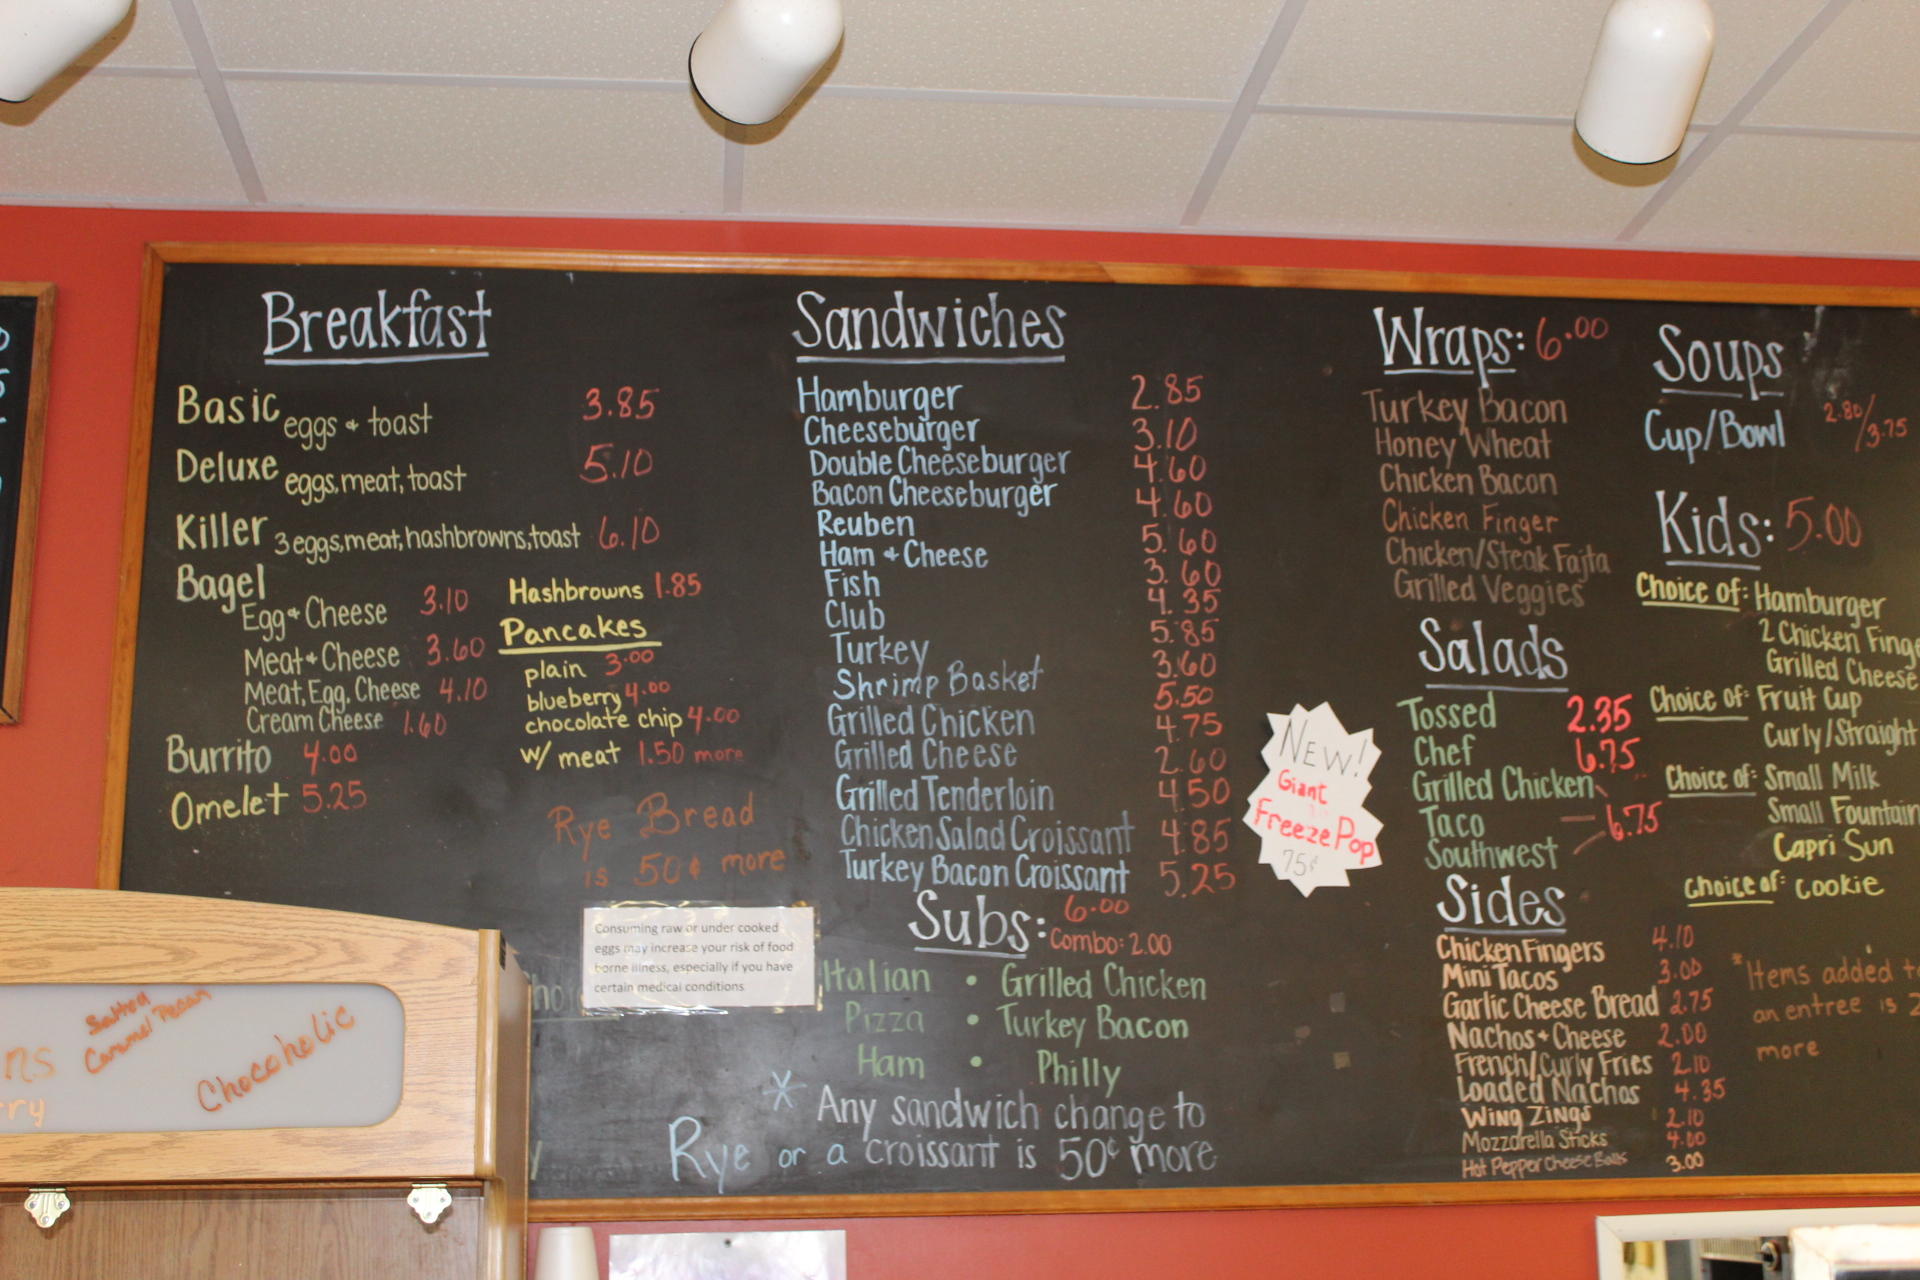 Breakfast
Basic eggs + toast 3.85
Deluxe eggs, meat, toast 5.10
Killer 3 eggs, meat, hashbrowns, toast 6.10
Bagel
Egg + Cheese 3.10
Meat + Cheese 3.60
Meat, Egg, Cheese 4.10
Cream Cheese 1.60
Burrito 4.00
Omelet 5.25
Hashbrowns 1.85
Pancakes
plain 3.00
blueberry 4.00
chocolate chip 4.00
w/ meat 1.50 more
Rye Bread
is 50¢ more
Consuming raw or under cooked
eggs may increase your risk of food
borne illness, especially if you have
certain medical conditions
Sandwiches
Hamburger 2.85
Cheeseburger 3.10
Double Cheeseburger 4.60
Bacon Cheeseburger 4.60
Reuben 5.60
Ham + Cheese 3.60
Fish 4.35
Club 5.85
Turkey 3.60
Shrimp Basket 5.50
Grilled Chicken 4.75
Grilled Cheese 2.60
Grilled Tenderloin 4.50
Chicken Salad Croissant 4.85
Turkey Bacon Croissant 5.25
Subs: 6.00
Combo: 2.00
Italian • Grilled Chicken
Pizza • Turkey Bacon
Ham • Philly
* Any sandwich change to
Rye or a croissant is 50¢ more
NEW!
Giant
Freeze Pop
75¢
Wraps: 6.00
Turkey Bacon
Honey Wheat
Chicken Bacon
Chicken Finger
Chicken/Steak Fajita
Grilled Veggies
Salads
Tossed 2.35
Chef 6.75
Grilled Chicken
Taco 6.75
Southwest
Sides
Chicken Fingers 4.10
Mini Tacos 3.00
Garlic Cheese Bread 2.75
Nachos + Cheese 2.00
French/Curly Fries 2.10
Loaded Nachos 4.35
Wing Zings 2.10
Mozzarella Sticks 4.00
Hot Pepper Cheese Balls 3.00
Soups
Cup/Bowl 2.80/3.75
Kids: 5.00
Choice of: Hamburger
2 Chicken Finge
Grilled Cheese
Choice of: Fruit Cup
Curly/Straight
Choice of: Small Milk
Small Fountain
Capri Sun
Choice of: Cookie
*Items added to
an entree is 2
more
Salted
Caramel Pecan
Chocoholic